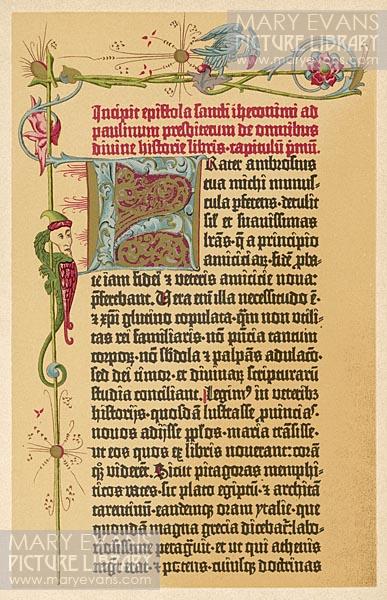 MARY EVANS
PICTURE LIBRARY
www.maryevans.com
Incipit epistola sancti iheronimi ad
paulinum presbiterum de omnibus
divine historie libris · capitulū p̄mū.
Frater ambrosius
tua michi munus-
cula p̄ferens · detulit
sił et suavissimas
lr̄as · q̄ a principio
amiciciaꝝ · fidē p̱ba-
te iam fidei et veteris amicicie nova:
p̄ferebant. Vera enī illa necessitudo ē ·
et xp̄i glutino copulata · q̄m non utili-
tas rei familiaris · nō p̄ncia tantum
corpoꝝ · nō sb̄dola et palpās adulacō ·
sed dei timor · et divinaꝝ scripturarū
studia conciliant. Legimꝰ in veteribꝰ
historijs · quosdā lustrasse p̱uīcias ·
novos adijsse p̱pl̄os · maria trāsisse ·
ut eos quos ex libris noverant : corā
qꝫ viderēt. Sicut pitagoras memphi-
ticos vates · sic plato egiptū · et architā
tarentinū · eandemqꝫ oram ytalie · que
quondam magna grecia dicebat̄ · labo-
riosissime peragravit · et ut qui athenis
mgr̄ erat · et potens · cuiusqꝫ doctrinas
MARY EVANS
PICTURE LIBRARY
www.maryevans.com